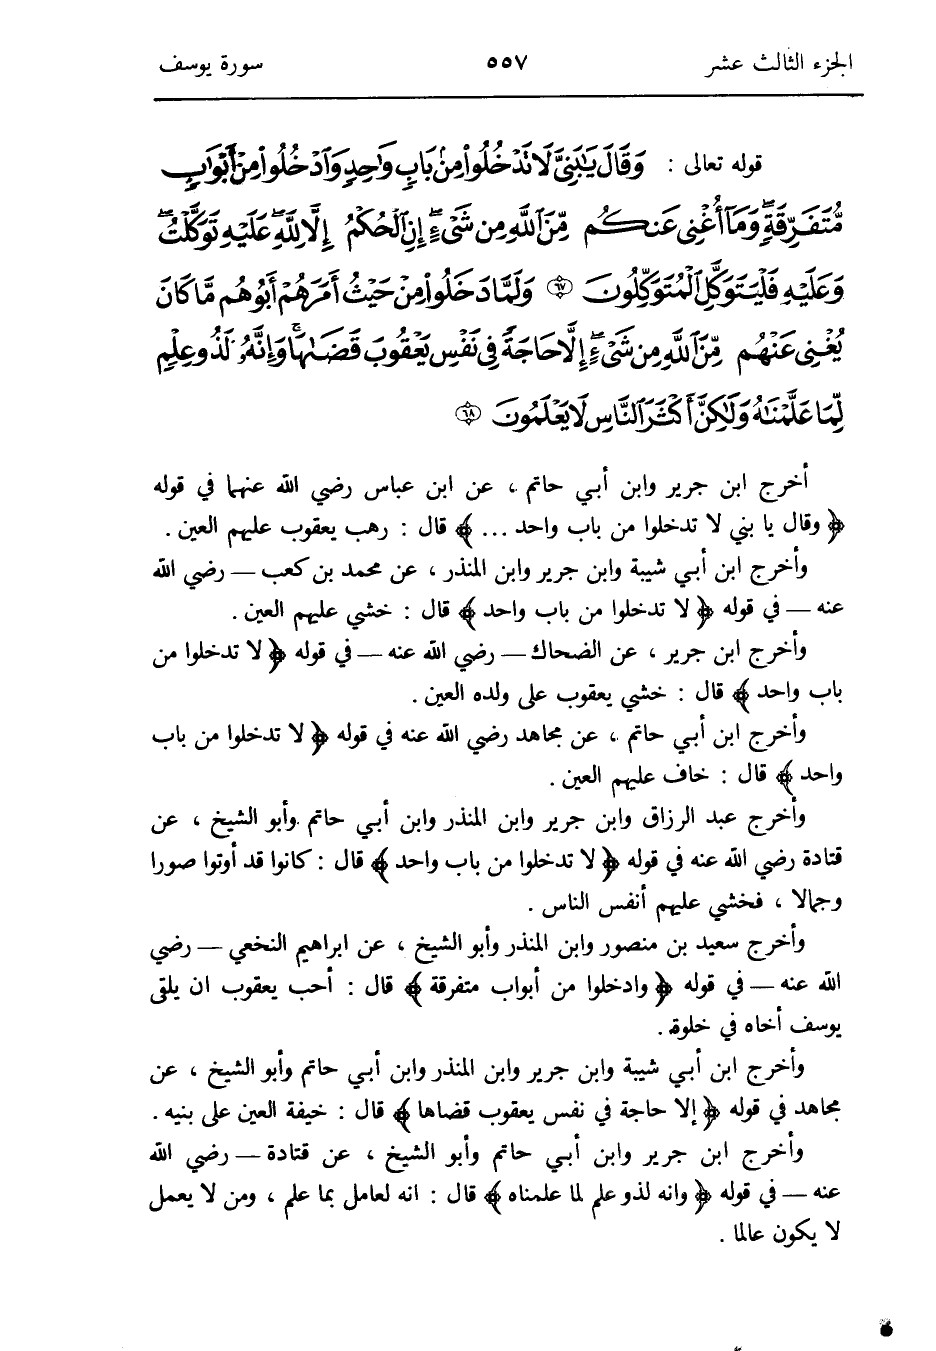 الجزء الثالث عشر ٥٥٧ سورة يوسف
قوله تعالى : وَقَالَ يَٰبَنِيَّ لَا تَدۡخُلُواْ مِنۢ بَابٖ وَٰحِدٖ وَٱدۡخُلُواْ مِنۡ أَبۡوَٰبٖ
مُّتَفَرِّقَةٖۖ وَمَآ أُغۡنِي عَنكُم مِّنَ ٱللَّهِ مِن شَيۡءٍۖ إِنِ ٱلۡحُكۡمُ إِلَّا لِلَّهِۖ عَلَيۡهِ تَوَكَّلۡتُۖ
وَعَلَيۡهِ فَلۡيَتَوَكَّلِ ٱلۡمُتَوَكِّلُونَ ٦٧ وَلَمَّا دَخَلُواْ مِنۡ حَيۡثُ أَمَرَهُمۡ أَبُوهُم مَّا كَانَ
يُغۡنِي عَنۡهُم مِّنَ ٱللَّهِ مِن شَيۡءٍ إِلَّا حَاجَةٗ فِي نَفۡسِ يَعۡقُوبَ قَضَىٰهَاۚ وَإِنَّهُۥ لَذُو عِلۡمٖ
لِّمَا عَلَّمۡنَٰهُ وَلَٰكِنَّ أَكۡثَرَ ٱلنَّاسِ لَا يَعۡلَمُونَ ٦٨
أخرج ابن جرير وابن أبي حاتم ، عن ابن عباس رضي الله عنهما في قوله
﴿ وقال يا بني لا تدخلوا من باب واحد ... ﴾ قال : رهب يعقوب عليهم العين .
وأخرج ابن أبي شيبة وابن جرير وابن المنذر ، عن محمد بن كعب — رضي الله
عنه — في قوله ﴿ لا تدخلوا من باب واحد ﴾ قال : خشي عليهم العين .
وأخرج ابن جرير ، عن الضحاك — رضي الله عنه — في قوله ﴿ لا تدخلوا من
باب واحد ﴾ قال : خشي يعقوب على ولده العين .
وأخرج ابن أبي حاتم ، عن مجاهد رضي الله عنه في قوله ﴿ لا تدخلوا من باب
واحد ﴾ قال : خاف عليهم العين .
وأخرج عبد الرزاق وابن جرير وابن المنذر وابن أبي حاتم وأبو الشيخ ، عن
قتادة رضي الله عنه في قوله ﴿ لا تدخلوا من باب واحد ﴾ قال : كانوا قد أوتوا صورا
وجمالا ، فخشي عليهم أنفس الناس .
وأخرج سعيد بن منصور وابن المنذر وأبو الشيخ ، عن ابراهيم النخعي — رضي
الله عنه — في قوله ﴿ وادخلوا من أبواب متفرقة ﴾ قال : أحب يعقوب ان يلقى
يوسف أخاه في خلوة .
وأخرج ابن أبي شيبة وابن جرير وابن المنذر وابن أبي حاتم وأبو الشيخ ، عن
مجاهد في قوله ﴿ إلا حاجة في نفس يعقوب قضاها ﴾ قال : خيفة العين على بنيه .
وأخرج ابن جرير وابن أبي حاتم وأبو الشيخ ، عن قتادة — رضي الله
عنه — في قوله ﴿ وانه لذو علم لما علمناه ﴾ قال : انه لعامل بما علم ، ومن لا يعمل
لا يكون عالما .